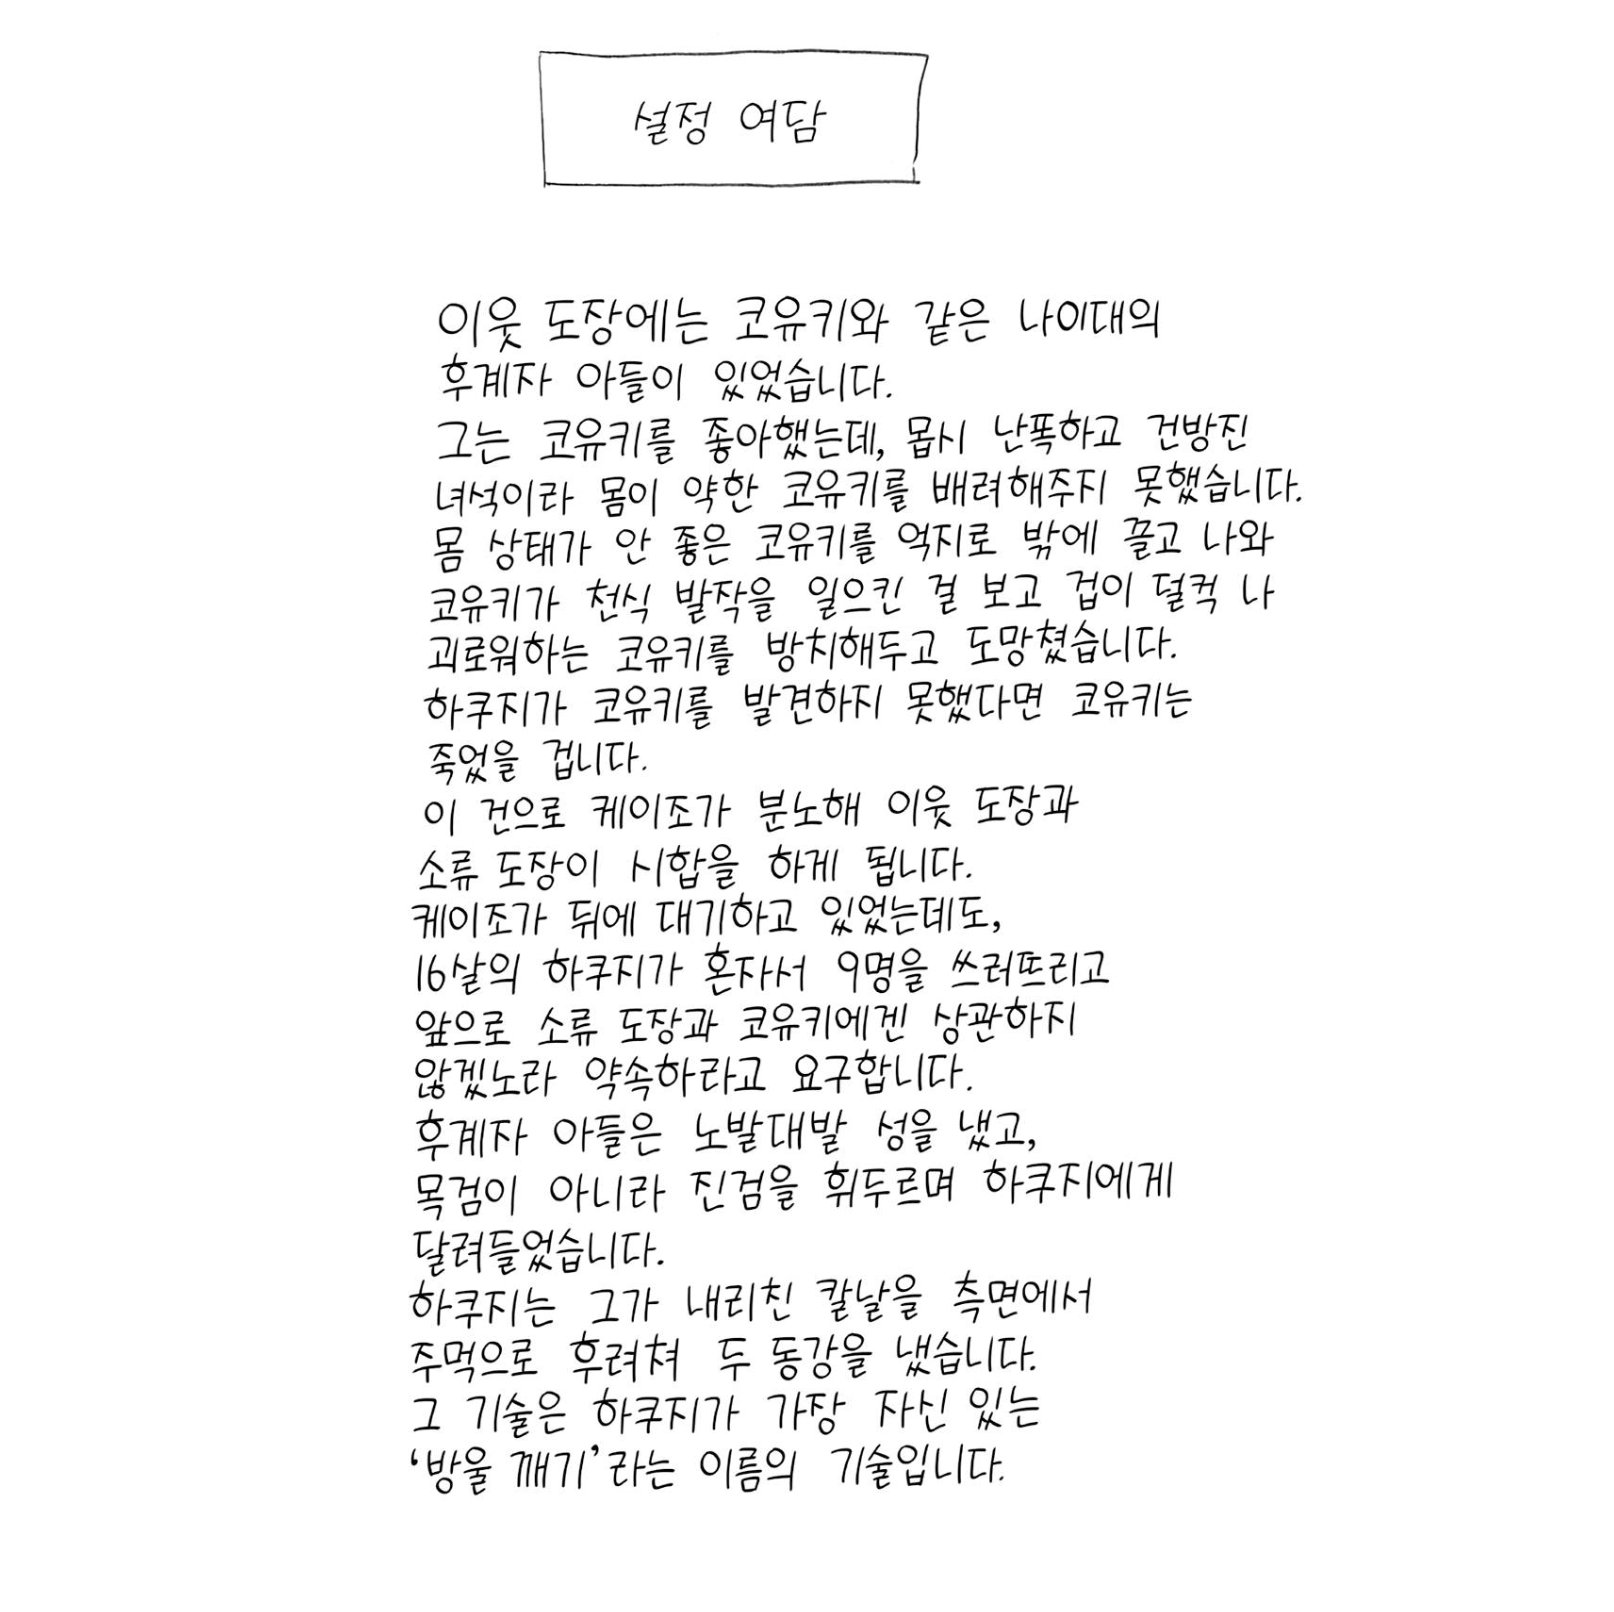 설정 여담
이웃 도장에는 코유키와 같은 나이대의
후계자 아들이 있었습니다.
그는 코유키를 좋아했는데, 몹시 난폭하고 건방진
녀석이라 몸이 약한 코유키를 배려해주지 못했습니다.
몸 상태가 안 좋은 코유키를 억지로 밖에 끌고 나와
코유키가 천식 발작을 일으킨 걸 보고 겁이 덜컥 나
괴로워하는 코유키를 방치해두고 도망쳤습니다.
하쿠지가 코유키를 발견하지 못했다면 코유키는
죽었을 겁니다.
이 건으로 케이조가 분노해 이웃 도장과
소류 도장이 시합을 하게 됩니다.
케이조가 뒤에 대기하고 있었는데도,
16살의 하쿠지가 혼자서 9명을 쓰러뜨리고
앞으로 소류 도장과 코유키에겐 상관하지
않겠노라 약속하라고 요구합니다.
후계자 아들은 노발대발 성을 냈고,
목검이 아니라 진검을 휘두르며 하쿠지에게
달려들었습니다.
하쿠지는 그가 내리친 칼날을 측면에서
주먹으로 후려쳐 두 동강을 냈습니다.
그 기술은 하쿠지가 가장 자신 있는
‘방울 깨기’라는 이름의 기술입니다.